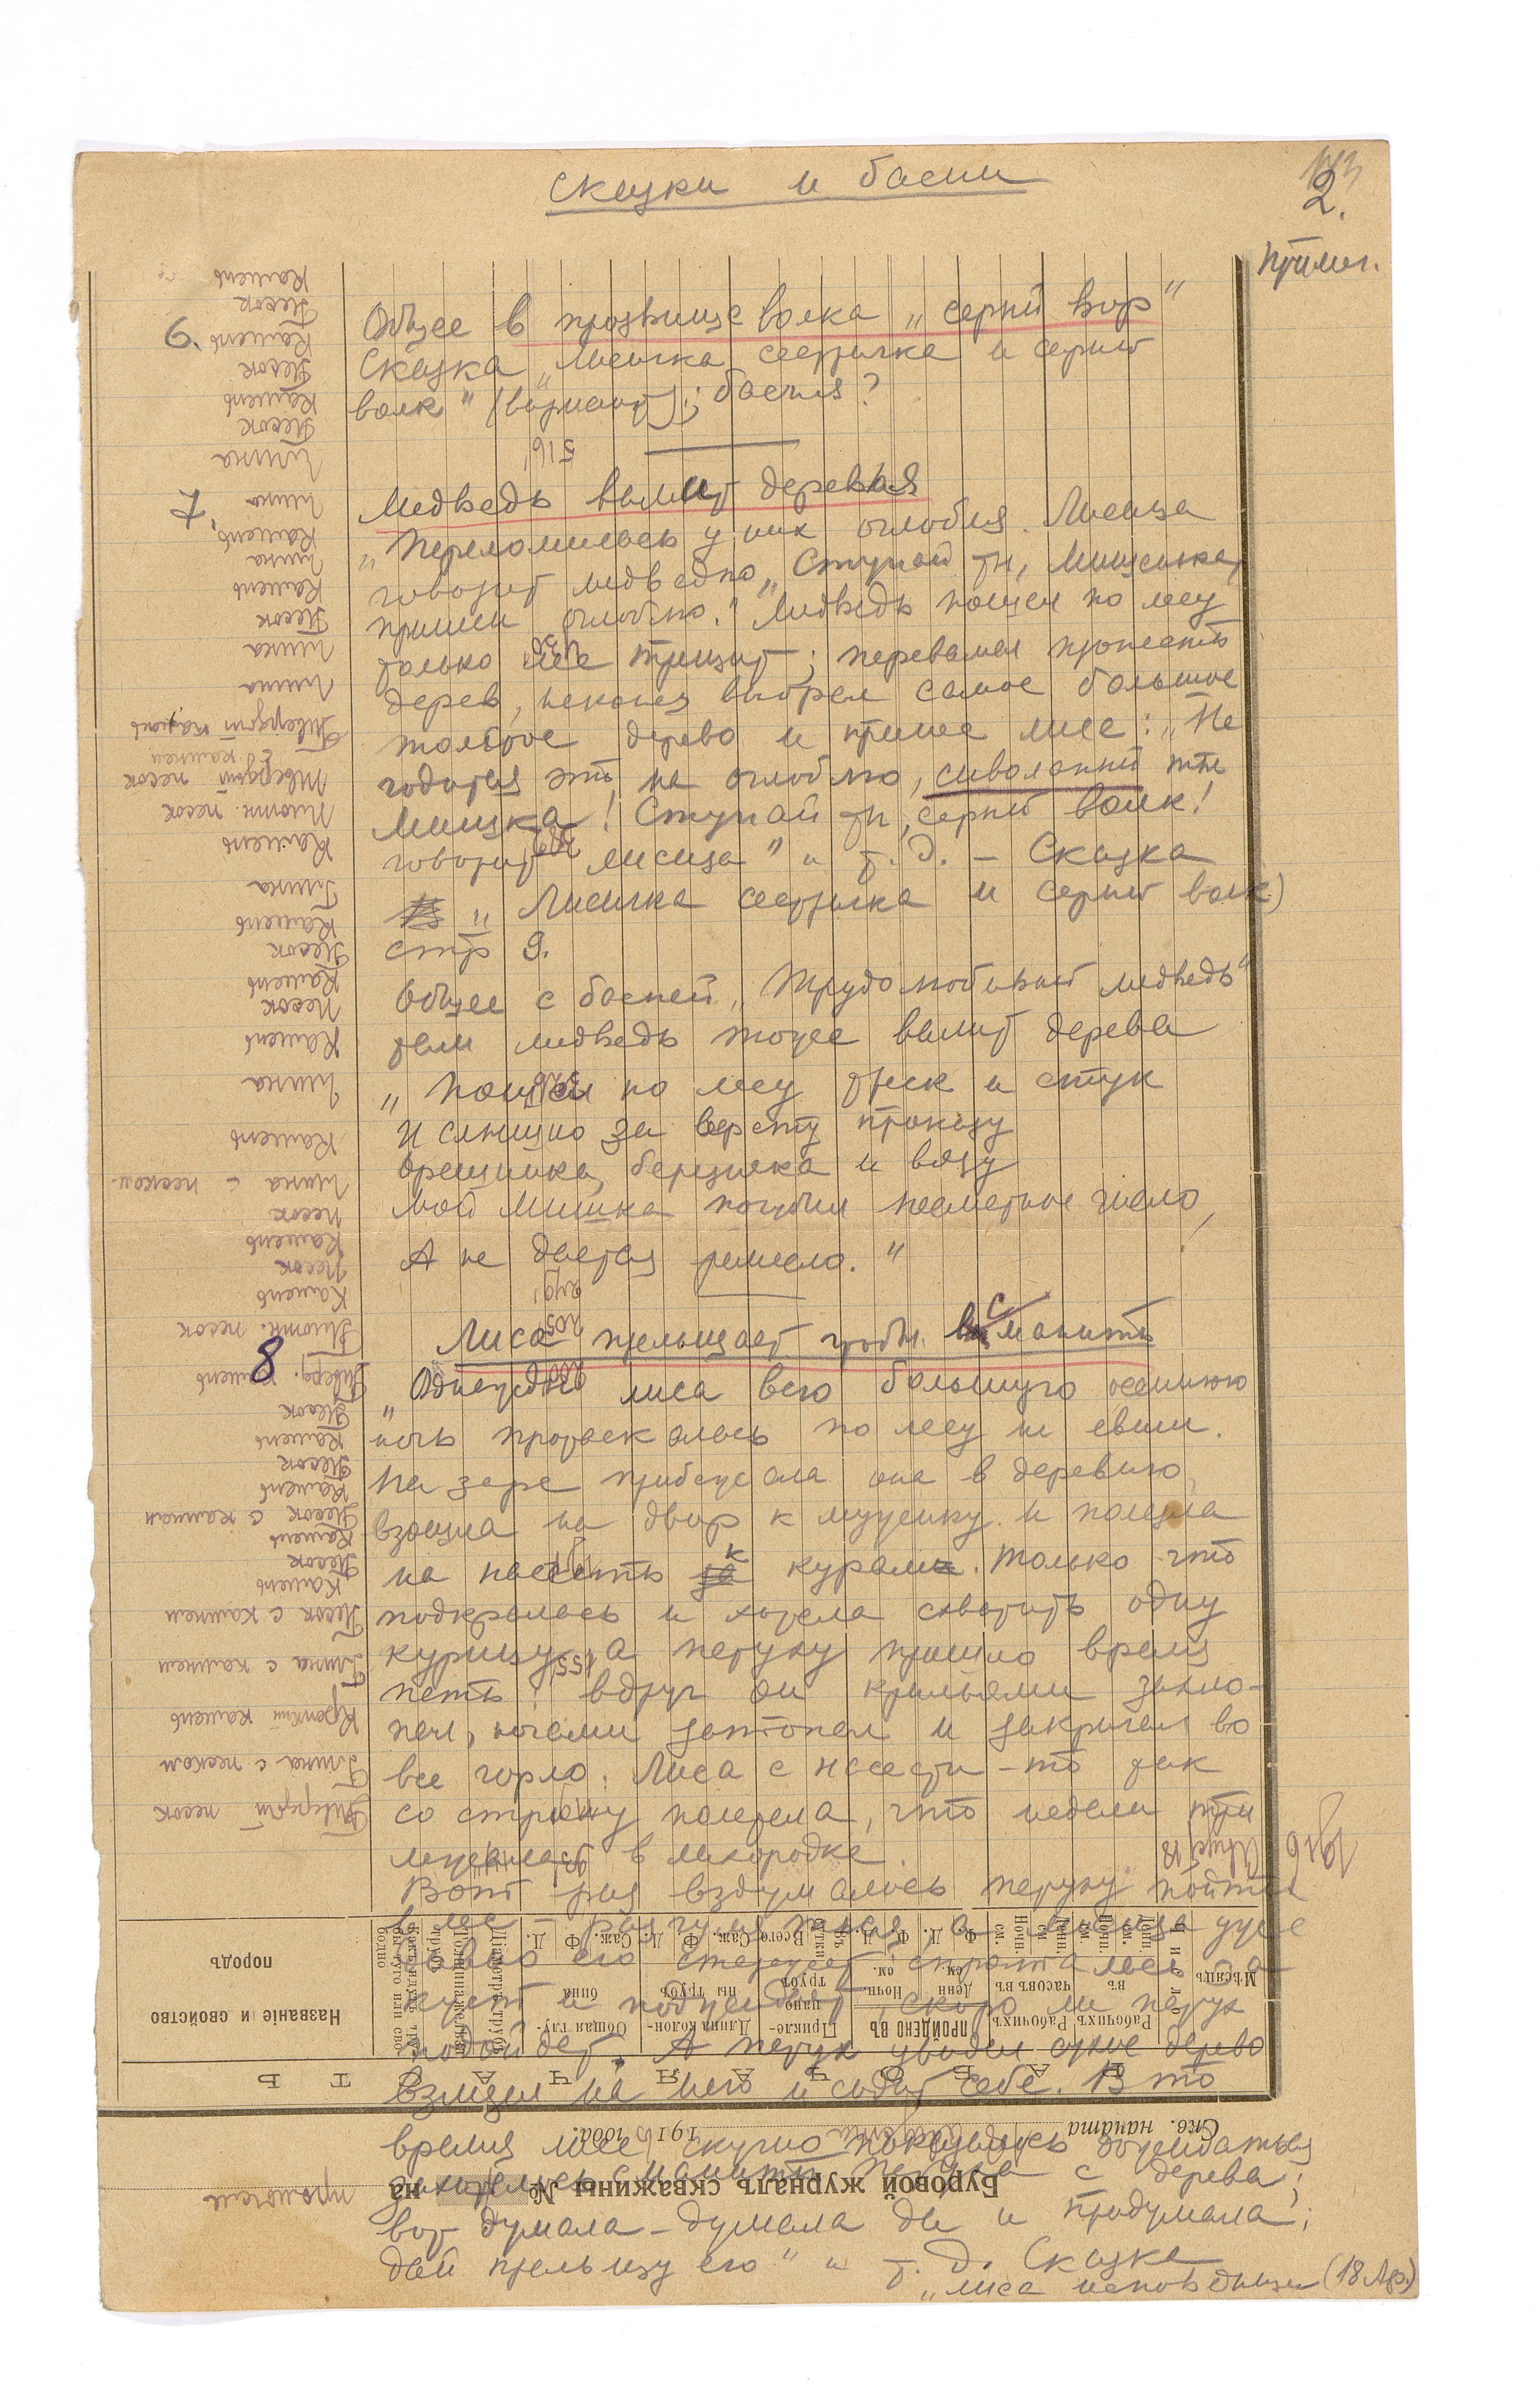 Сказки и басни
2.
примеч.
6.
Общее в прозвище волка „серый вор"
Сказка „Лисичка сестричка и серый
волк" (вариант); басня?
7.
Медведь валит деревья
„Переломилась у них оглобля. Лисица
говорит медведю „Ступай ты, Мишенька,
принеси оглоблю." Медведь пошел по лесу
только лес трещит; перевалял пропасть
дерев, наконец выбрал самое большое
толстое дерево и принес лисе: „Не
годится это на оглоблю, сиволапый ты
Мишка! Ступай ты, серый волк!
говорит лисица" и т. д. – Сказка
„Лисичка сестричка и серый волк)
стр 9.
Общее с басней „Трудолюбивый медведь"
там медведь тоже валит дерева
„Пошел по лесу треск и стук
И слышно за версту проказу
Орешника, березняка и вязу
Мой Мишка погубил несметное число,
А не дается ремесло."
8
Лиса прельщает чтобы сманить
„Однажды лиса всю большую осеннюю
ночь протаскалась по лесу не евши.
На заре прибежала она в деревню,
взошла на двор к мужику и полезла
на насесть к курам. Только что
подкралась и хотела схватить одну
курицу, а петуху пришло время
петь: вдруг он крыльями захло-
пал, ногами затопал и закричал во
все горло. Лиса с насести-то так
со страху полетела, что недели три
лежала в лихорадке.
Вот раз вздумалось петуху пойти
в лес – разгуляться, а лисица уже
давно его стережет; спряталась за
куст и поджидает, скоро ли петух
подойдет. А петух увидел сухое дерево
взлетел на него и сидит себе. В то
время лисе скучно показалось дожидаться
захотелось сманить петуха с дерева;
вот думала-думала да и придумала;
дай прельщу его" и т. д. Сказка
„Лиса исповедница (18 Аф.)
Буровой журналъ скважины № на
Скв. начата 191 года.
Названіе и свойство
породъ
Мѣсяцъ
ПРОЙДЕНО ВЪ
Рабочихъ
часовъ въ
Общая глу-
бина
Длина колон-
ны трубъ
Прикле-
пано
трубъ
Твердый песок
Глина с песком
Крепкий камень
Глина с камнем
Песок с камнем
Камень
Песок
Камень
Песок с камнем
Камень
Песок
Камень
Песок
Тверд. камень
Плотн. песок
Камень
Песок
Камень
песок
Глина с песком
Камень
Глина
Камень
Песок
Камень
Песок
Камень
Глина
Камень
Плотн. песок
Твердый песок
с камнем
Твердый камень
Глина
Глина
Песок
Камень
Глина
Камень
Глина
Глина
Песок
Камень
Песок
Камень
Песок
Камень
1916